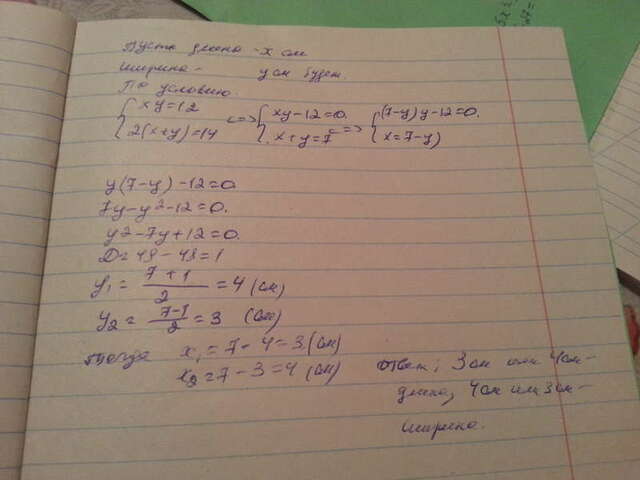 Пусть длина - x см
ширина - y см будет.
По условию.
{xy=12 <=> {xy-12=0. <=> {(7-y)y-12=0.
{2(x+y)=14 {x+y=7 {x=7-y)
y(7-y)-12=0
7y-y²-12=0.
y²-7y+12=0.
D=49-48=1
y₁= (7+1)/2 =4 (см)
y₂= (7-1)/2 =3 (см)
тогда x₁=7-4=3 (см)
x₂=7-3=4 (см)
ответ; 3см или 4см-
длина, 4см или 3см-
ширина.